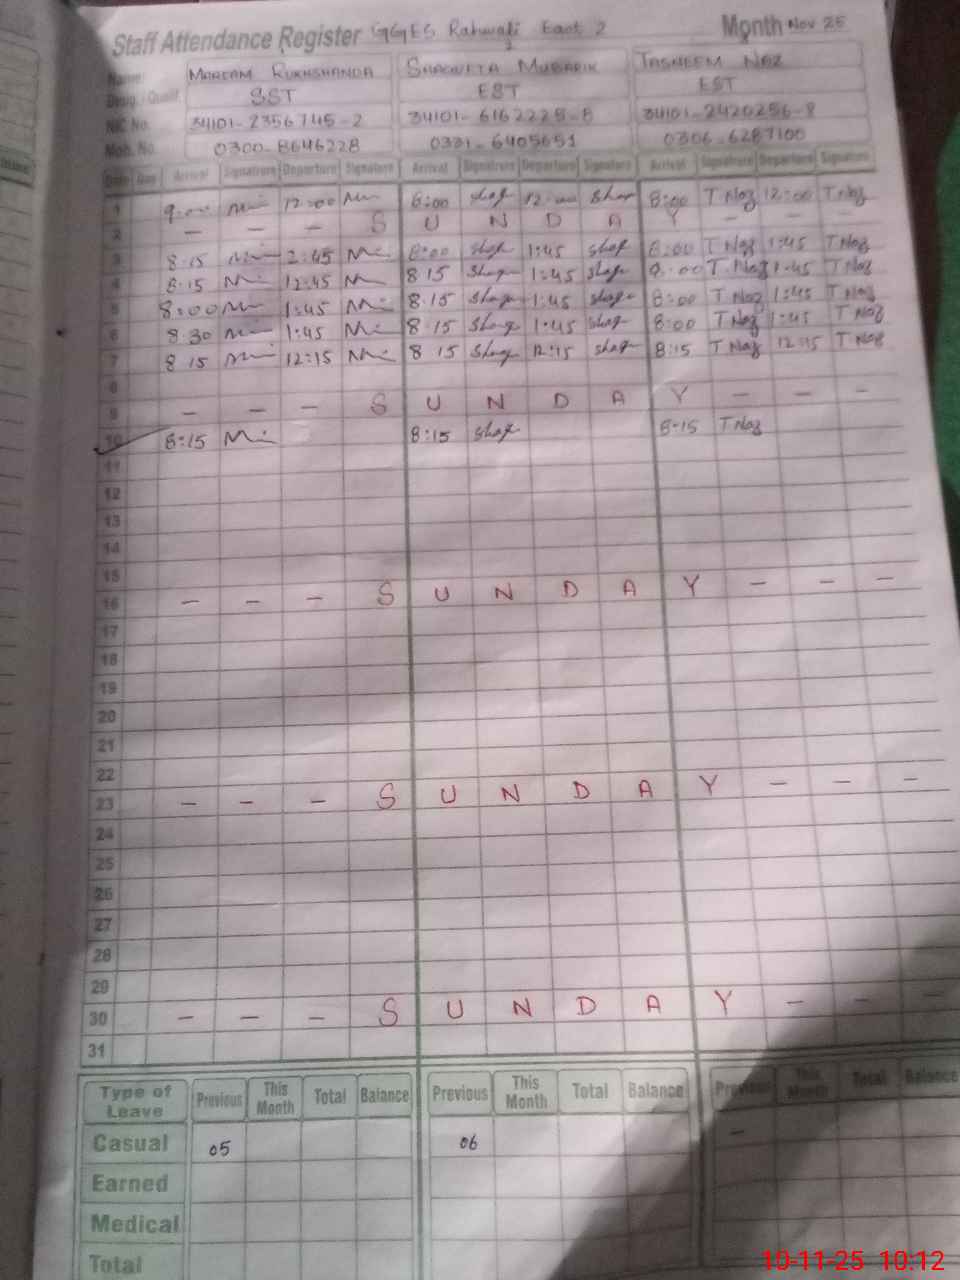 Staff Attendance Register GGES Rahwali East 2 Month Nov 25
Name: MARYAM RUKHSHANDA SHAGUFTA MUBARIK TASNEEM NAZ
Desig. / Qualif. SST EST EST
NIC No. 34101-2356745-2 34101-6162225-8 34101-2420256-8
Mob. No. 0300-8646228 0331-6405651 0306-6287100
Date Day Arrival Signature Departure Signature Arrival Signature Departure Signature Arrival Signature Departure Signature
1 9:00 12:00 8:00 shag 12:00 shag 8:00 T Naz 12:00 T Naz
2 - - - S U N D A Y - - -
3 8:15 2:45 8:00 shag 1:45 shag 8:00 T Naz 1:45 T Naz
4 8:15 12:45 8 15 shag 1:45 shag 8:00 T Naz 1:45 T Naz
5 8:00 1:45 8:15 shag 1:45 shag 8:00 T Naz 1:45 T Naz
6 8 30 1:45 8 15 shag 1:45 shag 8:00 T Naz 1:45 T Naz
7 8 15 12:15 8 15 shag 12:15 shag 8:15 T Naz 12:15 T Naz
8
9 - - - S U N D A Y - - -
10 8:15 8:15 shag 8:15 T Naz
11
12
13
14
15
16 - - - S U N D A Y - - -
17
18
19
20
21
22
23 - - - S U N D A Y - - -
24
25
26
27
28
29
30 - - - S U N D A Y - - -
31
Type of Leave Previous This Month Total Balance Previous This Month Total Balance Previous This Month Total Balance
Casual 05 06 -
Earned
Medical
Total
10-11-25 10:12